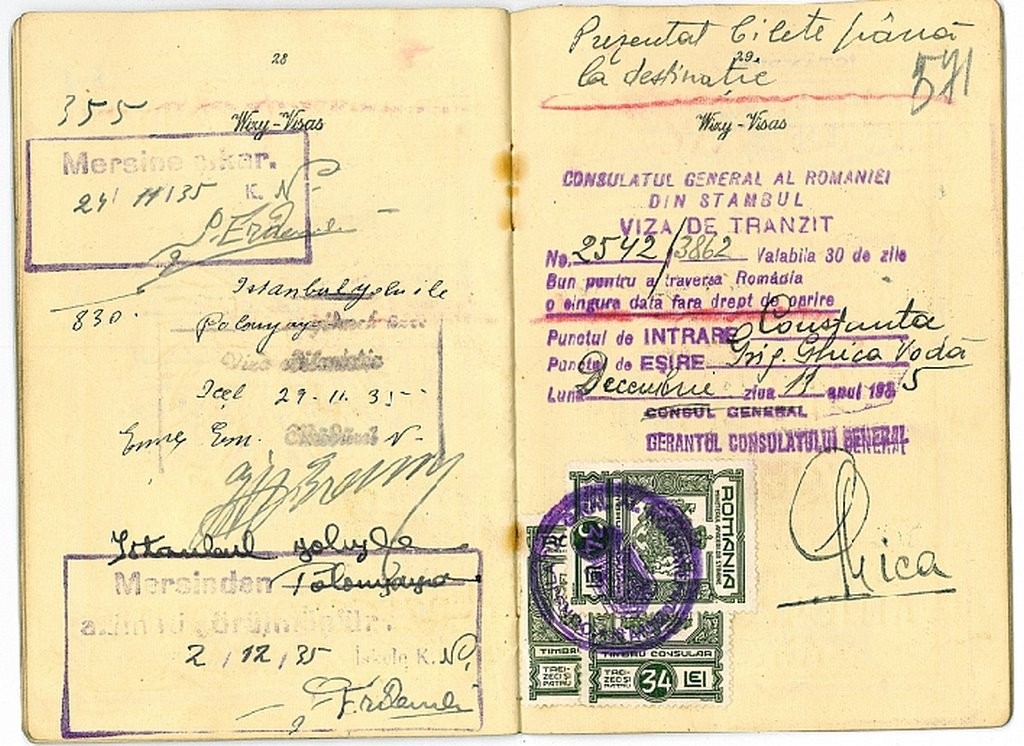 28
355
Wizy-Visas
Mersine çıkar.
24/ 11/35 K. N
P. Erdemli
830.
Istanbul yolu ile
Polonyaya
Vize
Icel 29-11-35
Emn.
N-
Istanbul yoluyla
Mersinden Polonyaya
azimeti görülmüştür.
2/12/35 İskele K. N
Erdemli
Prezentat bilete până
29.
la destinație
571
Wizy-Visas
CONSULATUL GENERAL AL ROMANIEI
DIN STAMBUL
VIZA DE TRANZIT
No. 2542/3862 Valabila 30 de zile
Bun pentru a traversa România
o singura data fara drept de oprire
Punctul de INTRARE Constanta
Punctul de EȘIRE Grig. Ghica Vodă
Luna Decembrie ziua 11 anul 1935
CONSUL GENERAL
GERANTUL CONSULATULUI GENERAL
ROMANIA
34 LEI
Ghica
TIMBRU
TIMBRU CONSULAR
TREI-
ZECI ȘI
PATRU
TREI-
ZECI ȘI
PATRU
34 LEI